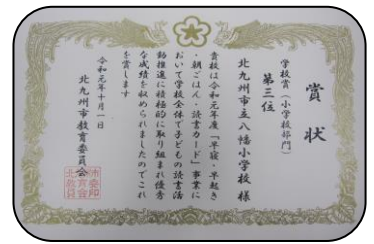 賞状
学校賞(小学校部門)
第三位
北九州市立八幡小学校 様
貴校は令和元年度「早寝・早起き
・朝ごはん・読書カード」事業に
おいて学校全体で子どもの読書活
動推進に積極的に取り組まれ優秀
な成績を収められましたのでこれ
を賞します
令和元年十月一日
北九州市教育委員会